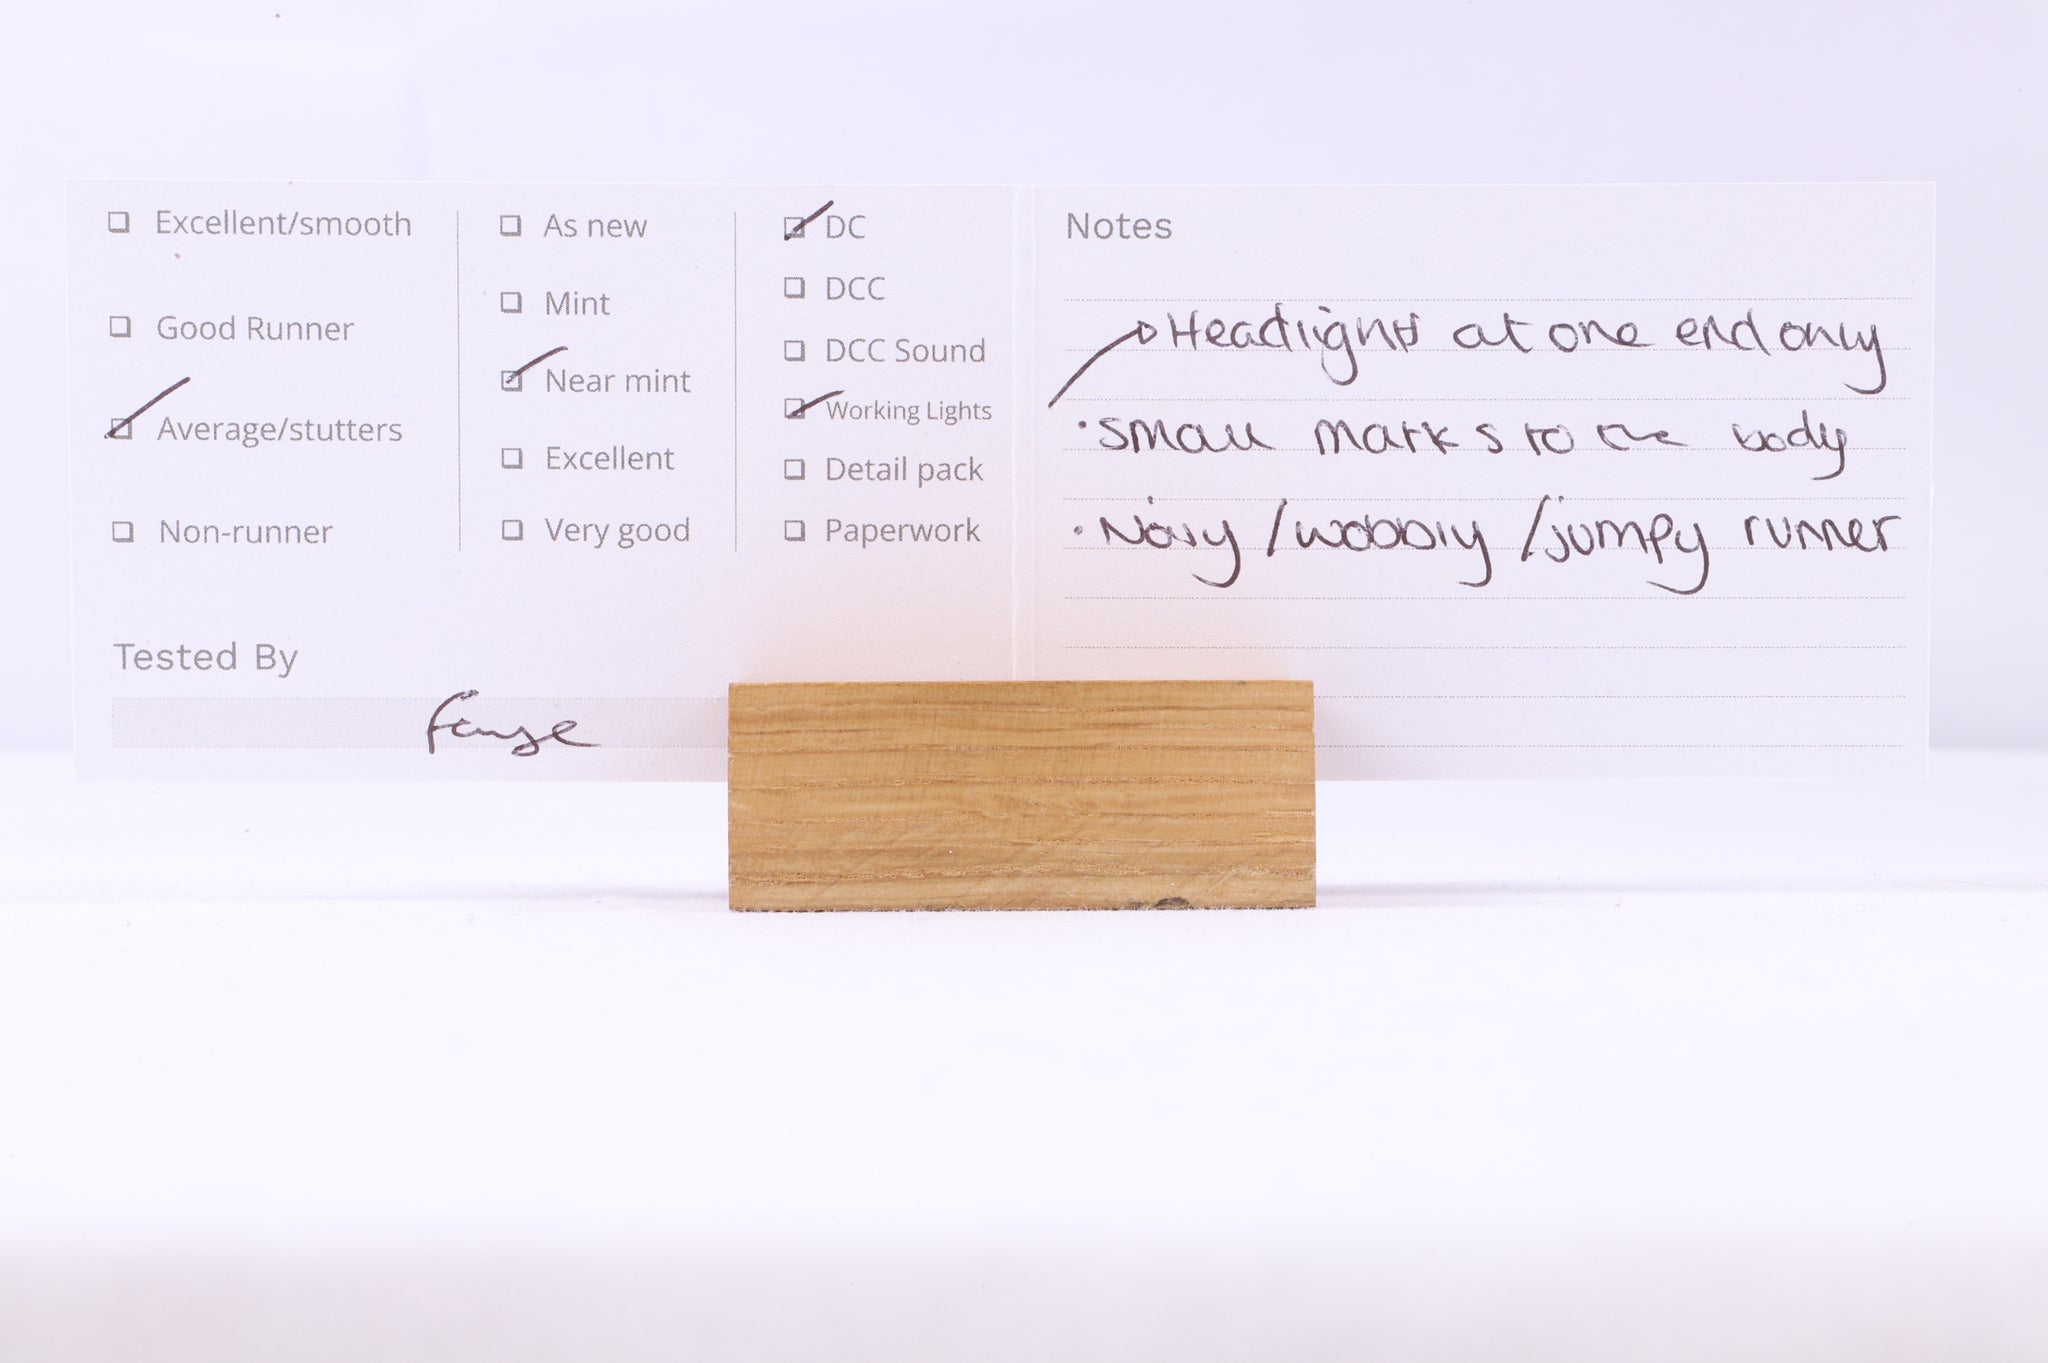 Excellent/smooth
Good Runner
Average/stutters
Non-runner
As new
Mint
Near mint
Excellent
Very good
DC
DCC
DCC Sound
Working Lights
Detail pack
Paperwork
Tested By
faye
Notes
Headlights at one end only
· small marks to the body
· Noisy / wobbly / jumpy runner